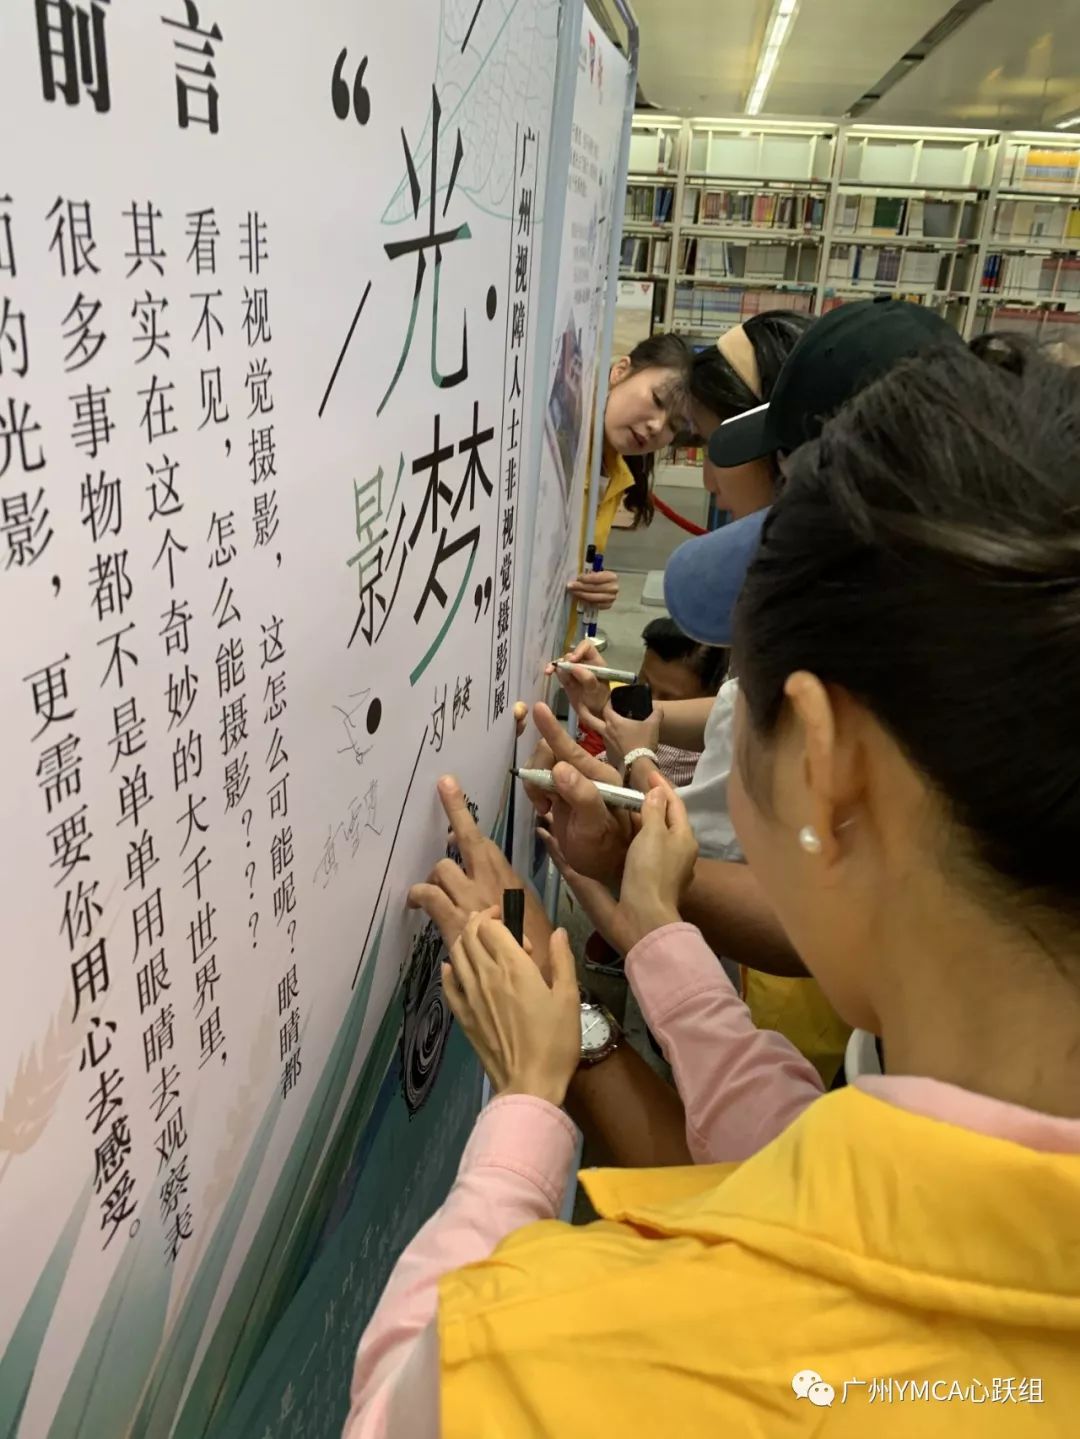 “光·影·梦”
广州视障人士非视觉摄影展
前言
非视觉摄影，这怎么可能呢？眼睛都
看不见，怎么能摄影？？？？
其实在这个奇妙的大千世界里，
很多事物都不是单单用眼睛去观察表
面的光影，更需要你用心去感受。
广州YMCA心跃组